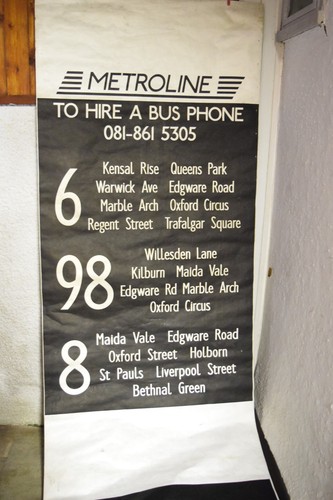 METROLINE
TO HIRE A BUS PHONE
081-861 5305
6
Kensal Rise Queens Park
Warwick Ave Edgware Road
Marble Arch Oxford Circus
Regent Street Trafalgar Square
98
Willesden Lane
Kilburn Maida Vale
Edgware Rd Marble Arch
Oxford Circus
8
Maida Vale Edgware Road
Oxford Street Holborn
St Pauls Liverpool Street
Bethnal Green